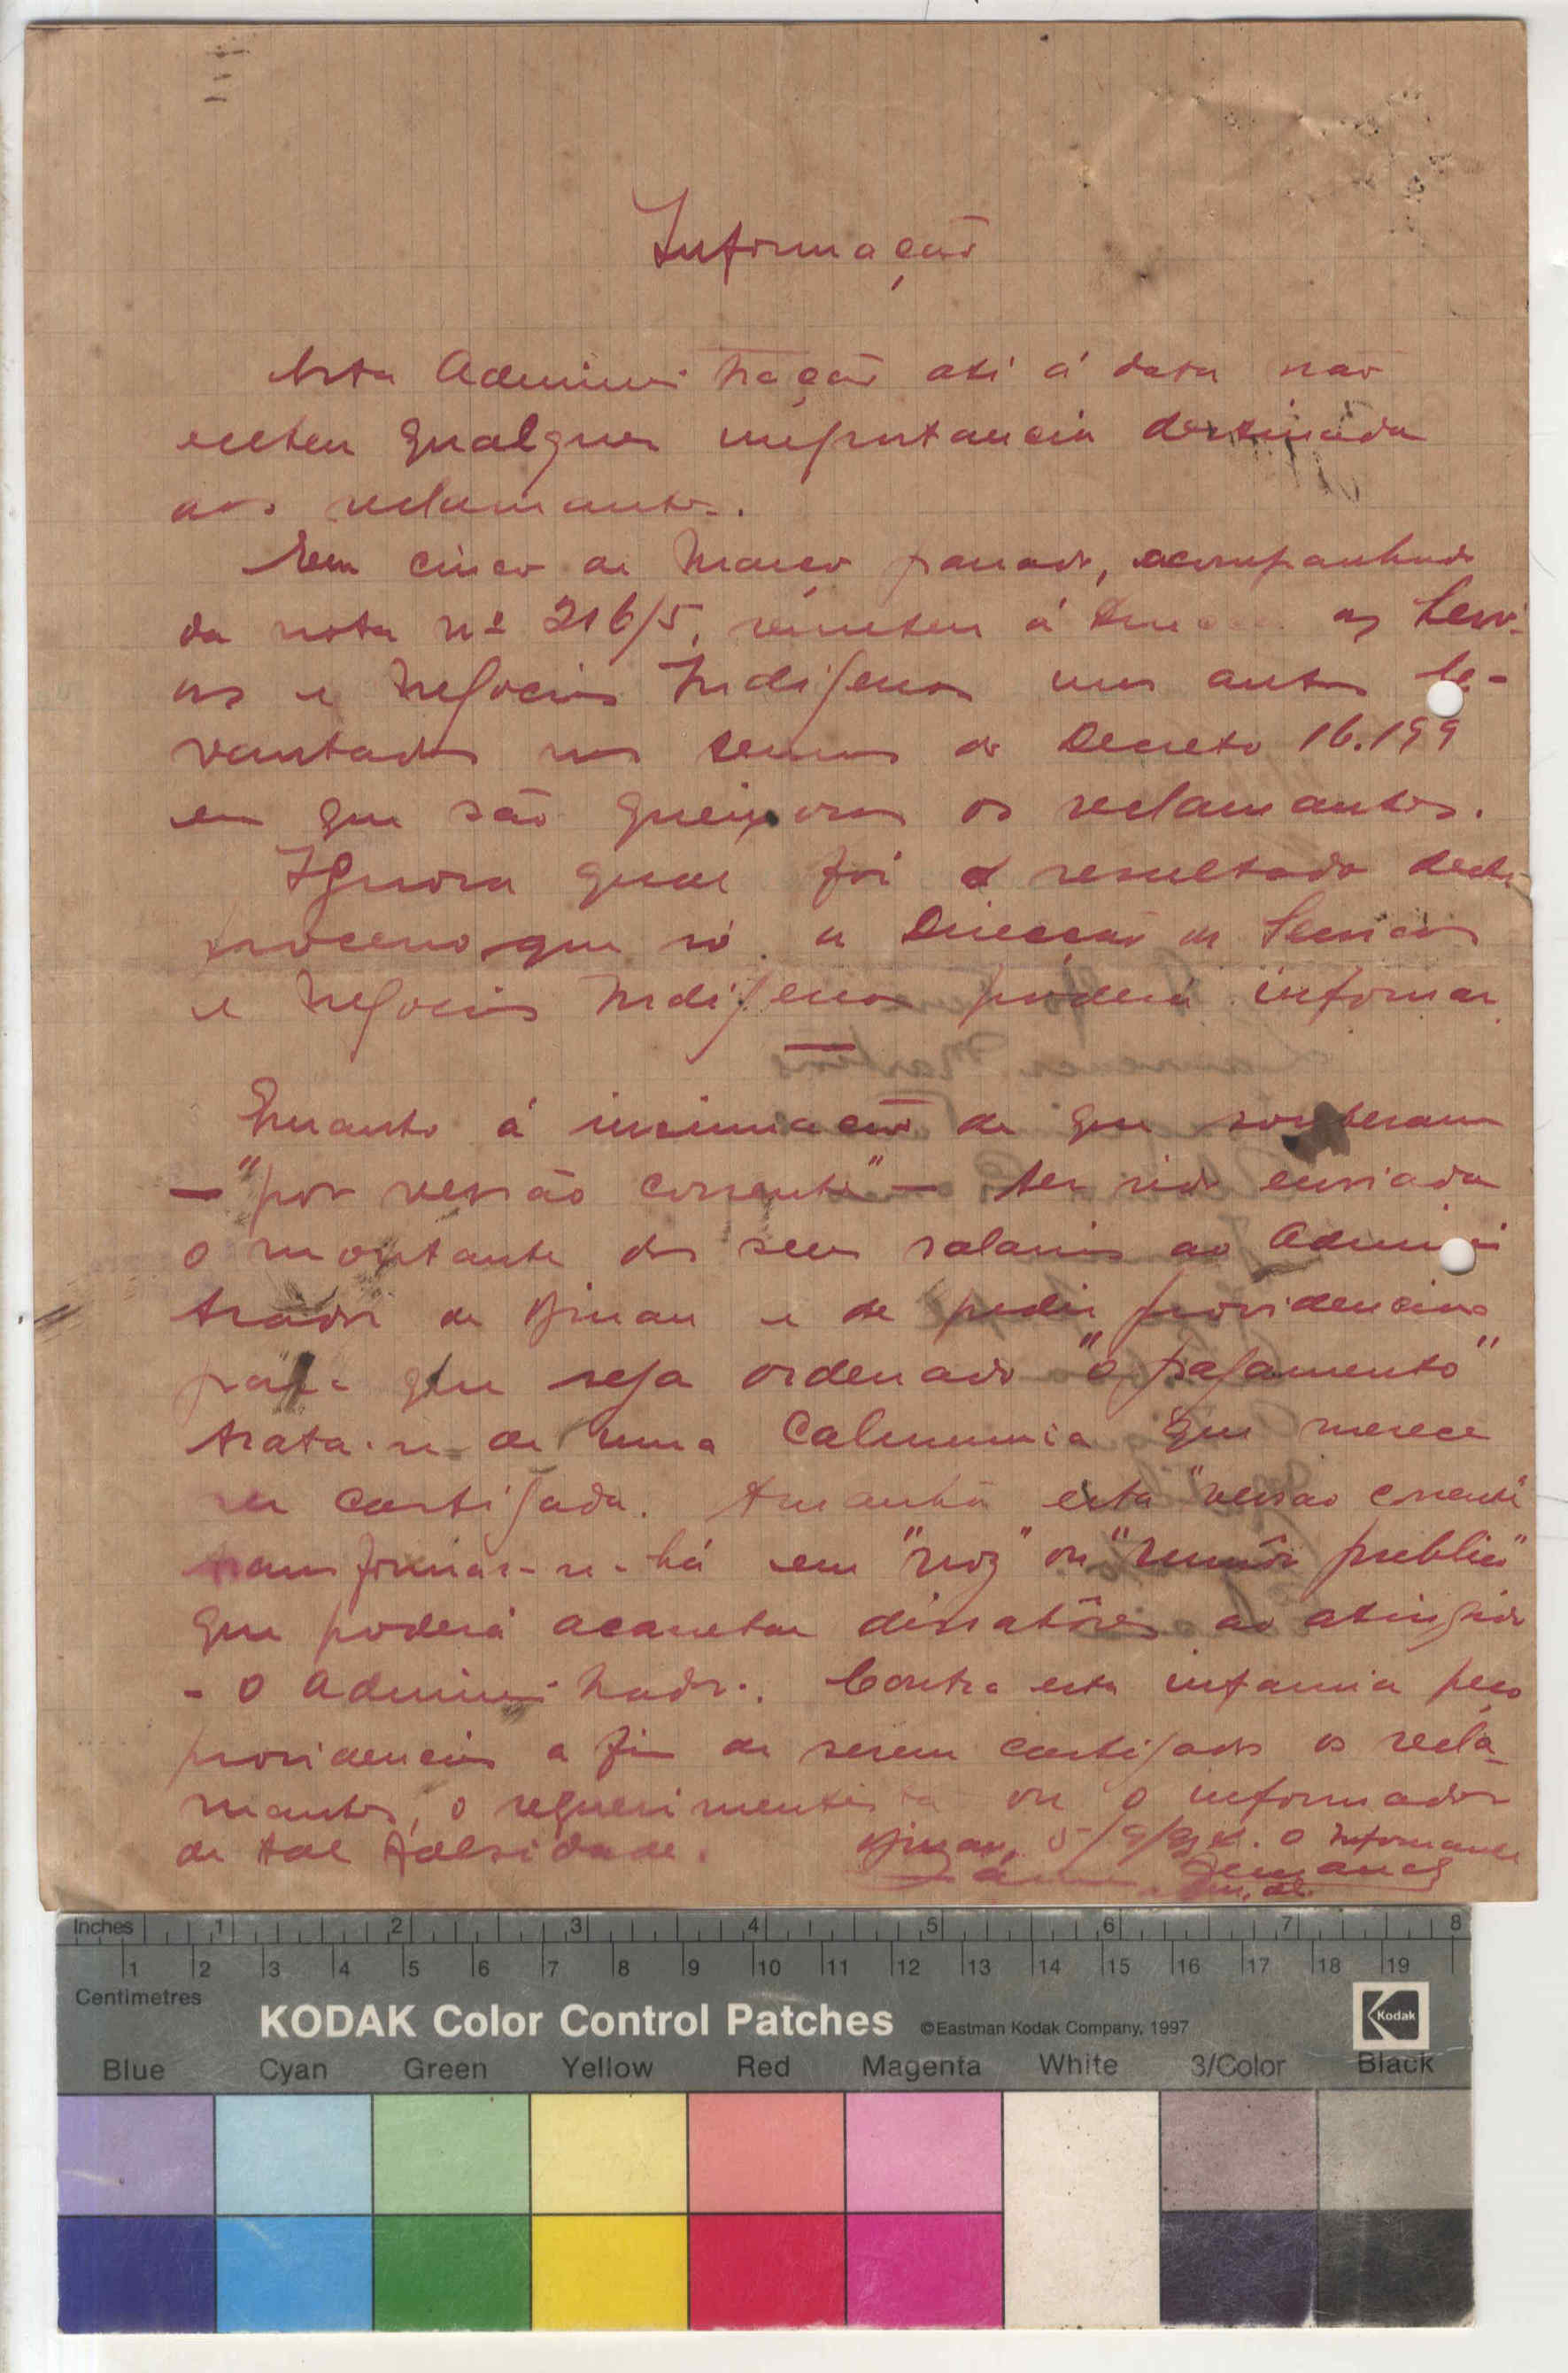 Informação
Esta Administração até á data não
recebeu qualquer importancia destinada
aos reclamantes.
Em cinco de Março passado, acompanhado
da nota nº 216/5, remeteu á as Servi-
os e Negocios Indigenas uns autos le-
vantados nos termos do Decreto 16.199
em que são queixosos os reclamantes.
Ignora qual foi o resultado deste
processo que só a Direcção de Serviços
e Negocios Indigenas poderá informar
Quanto á insinuação de que souberam
— "por versão corrente" — ter sido enviada
o montante dos seus salarios ao Adminis
trador de e de pedir providencias
para que seja ordenado "o pagamento"
trata-se de uma Calumnia que merece
ser castigada. Amanhã esta "versão corrente"
transformar-se-há em "voz" ou "rumôr publico"
que poderá acarretar dissabôres ao atingido
- O Administrador. Contra esta infamia peço
providencias a fim de serem castigados os recla-
mantes, o requerimentista ou o informador
de tal falsidade. O Informante
Inches 1 2 3 4 5 6 7 8
1 2 3 4 5 6 7 8 9 10 11 12 13 14 15 16 17 18 19
Centimetres
KODAK Color Control Patches ©Eastman Kodak Company, 1997 Kodak
Blue Cyan Green Yellow Red Magenta White 3/Color Black